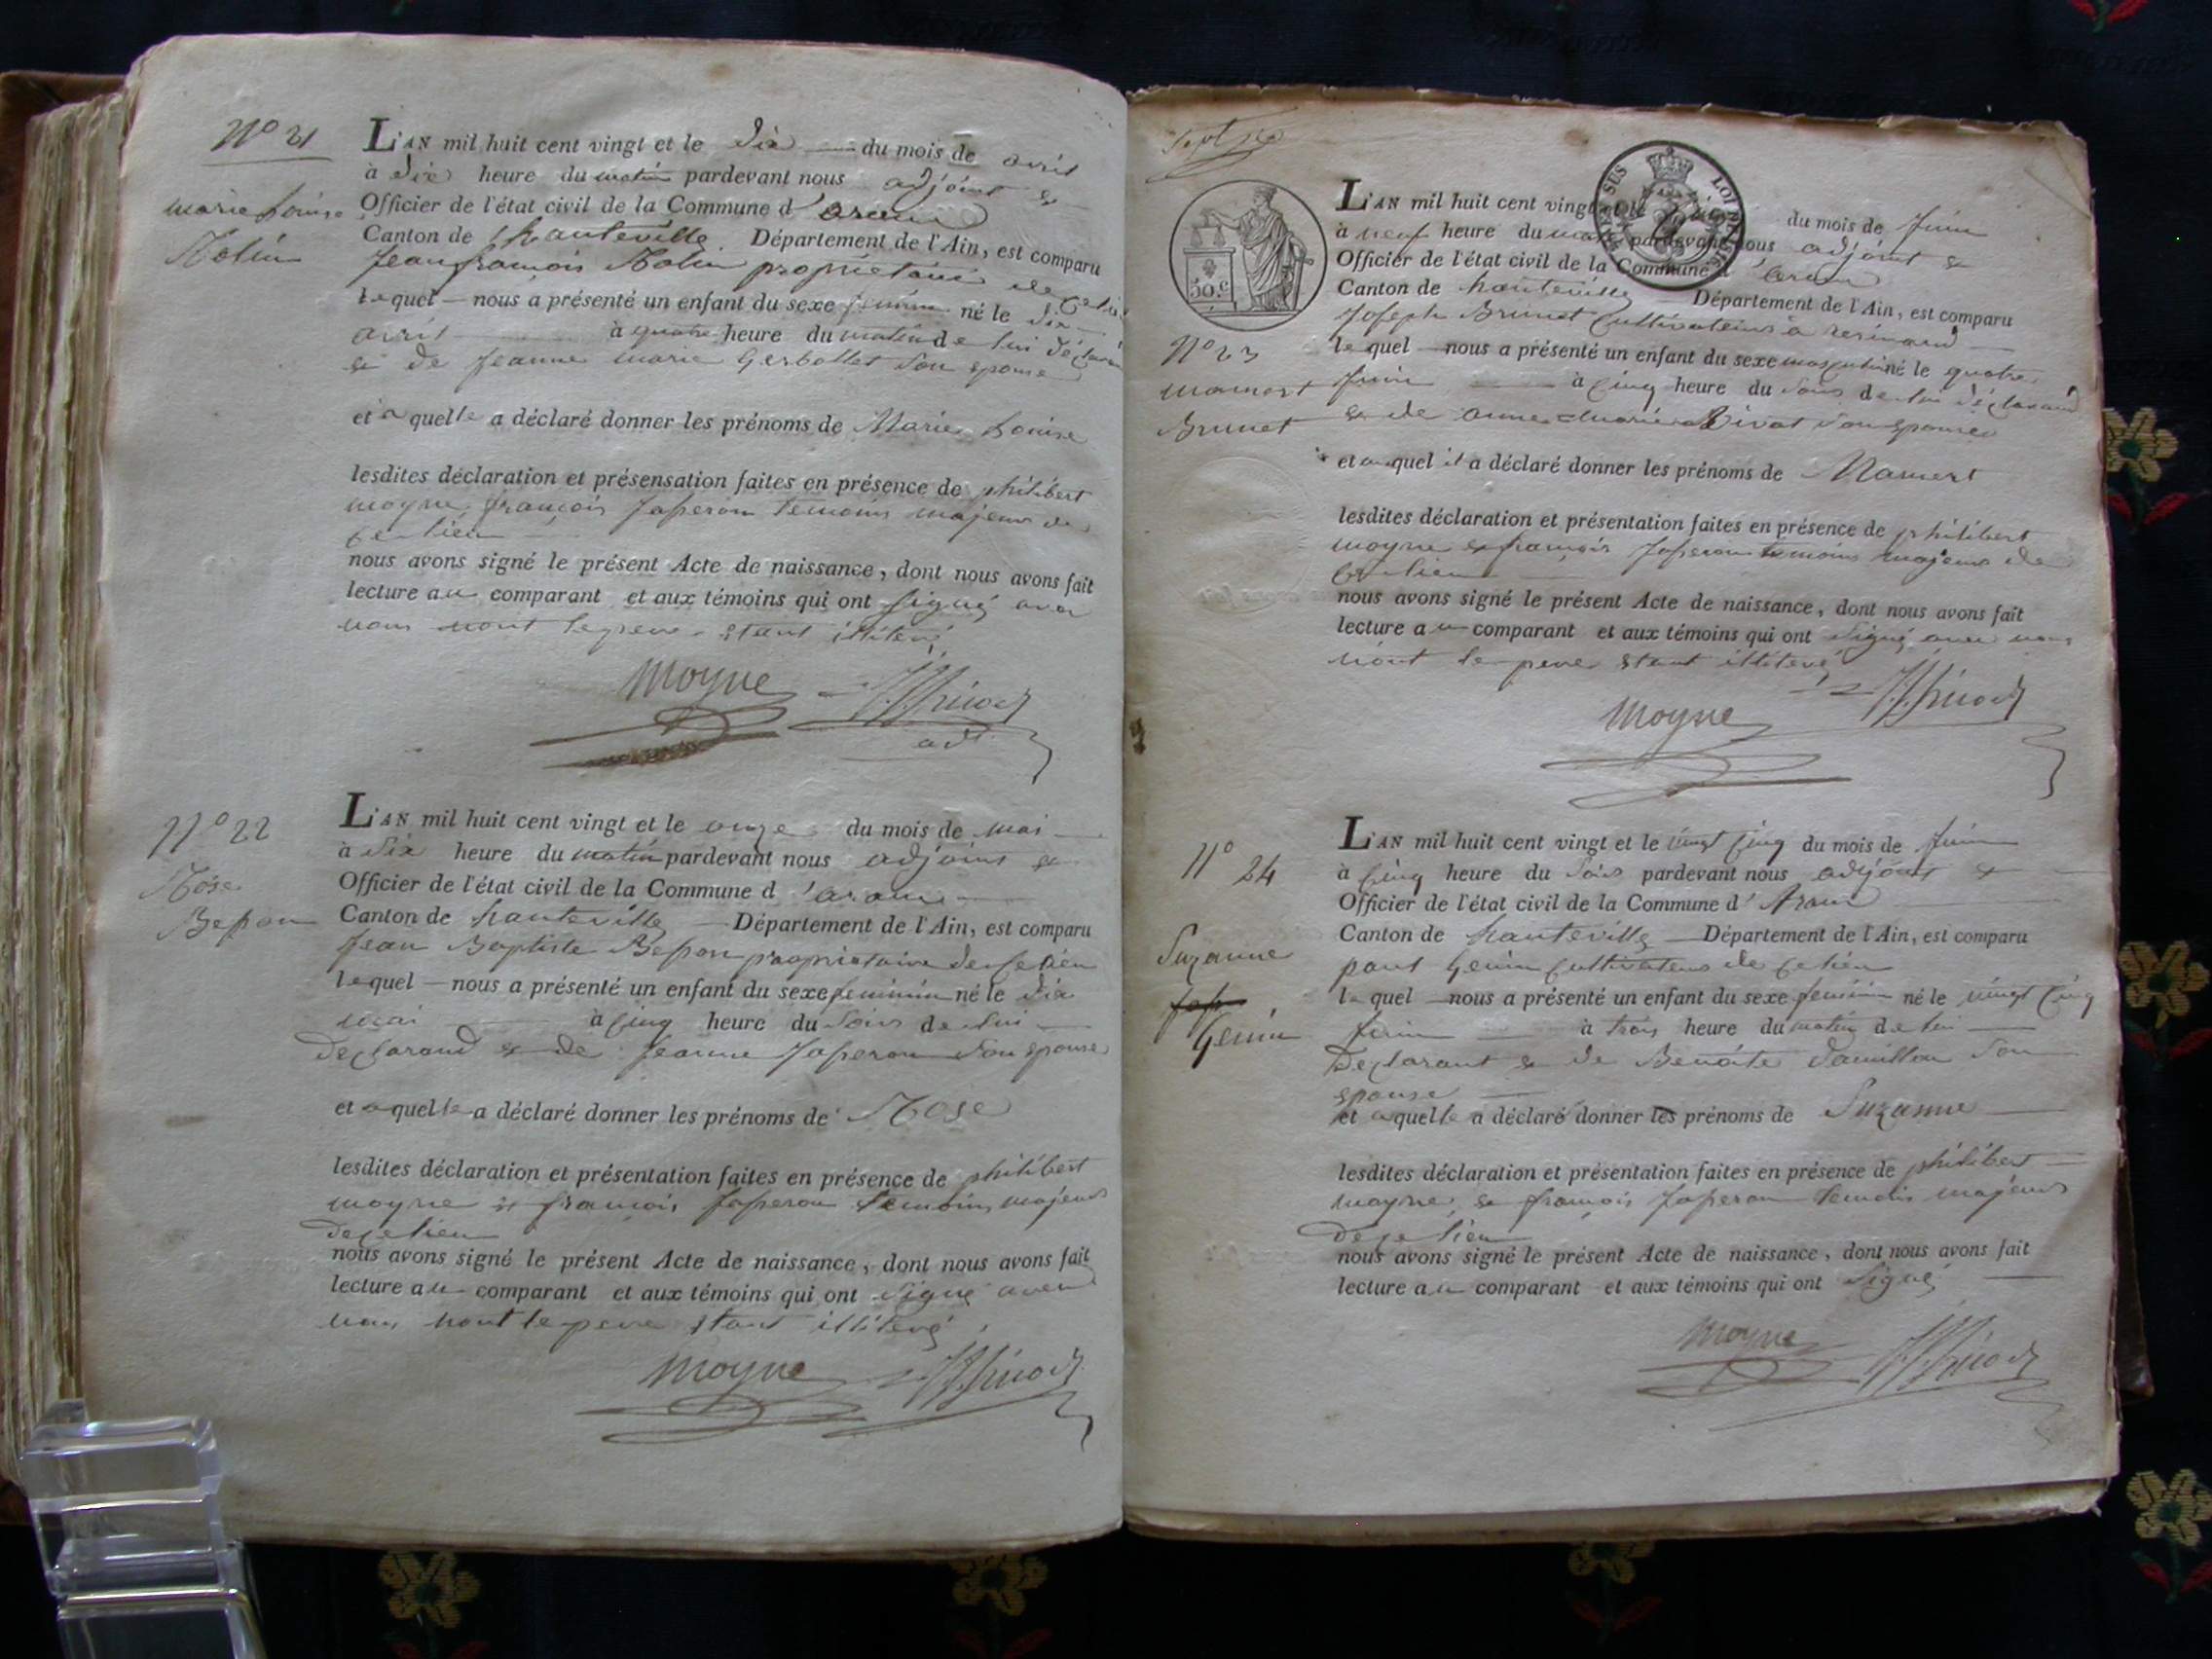 N° 21
marie Louise
Rolin
L'AN mil huit cent vingt et le dix du mois de avril
à dix heure du matin pardevant nous adjoint &
Officier de l'état civil de la Commune d'aranc
Canton de hauteville. Département de l'Ain, est comparu
Jean françois Rolin propriétaire de ce lieu
lequel nous a présenté un enfant du sexe feminin né le dix
avril à quatre heure du matin de lui déclarant
& de Jeanne marie Gerbollet son epouse
et a quelle a déclaré donner les prénoms de Marie Louise
lesdites déclaration et présensation faites en présence de philibert
moyne, françois Jasseron temoins majeurs de
ce lieu
nous avons signé le présent Acte de naissance, dont nous avons fait
lecture au comparant et aux témoins qui ont signé avec
nous non le pere etant illiteré
Moyne
adt
N° 22
Rose
Besson
L'AN mil huit cent vingt et le onze du mois de mai
à six heure du matin pardevant nous adjoint &
Officier de l'état civil de la Commune d'aranc
Canton de hauteville Département de l'Ain, est comparu
Jean Baptiste Besson propriétaire de ce lieu
lequel nous a présenté un enfant du sexe feminin né le dix
mai à cinq heure du soir de lui
declarand & de Jeanne Jasseron son epouse
et a quelle a déclaré donner les prénoms de Rose
lesdites déclaration et présentation faites en présence de philibert
moyne & françois Jasseron temoins majeurs
de ce lieu
nous avons signé le présent Acte de naissance, dont nous avons fait
lecture au comparant et aux témoins qui ont signé avec
nous nont le pere etant illiteré
Moyne
50.c
LOI
N° 23
mamert
Brunet
L'AN mil huit cent vingt et le du mois de Juin
à neuf heure du matin pardevant nous adjoint &
Officier de l'état civil de la Commune d'aranc
Canton de hauteville Département de l'Ain, est comparu
Joseph Brunet cultivateur à resinand
lequel nous a présenté un enfant du sexe masculin né le quatre
Juin à cinq heure du soir de lui déclarand
& de anne marie Bivat son epouse
et auquel il a déclaré donner les prénoms de Mamert
lesdites déclaration et présentation faites en présence de philibert
moyne & françois Jasseron temoins majeurs de
ce lieu
nous avons signé le présent Acte de naissance, dont nous avons fait
lecture au comparant et aux témoins qui ont signé avec nous
nont le pere etant illiteré
Moyne
N° 24
Suzanne
Genin
L'AN mil huit cent vingt et le vingt cinq du mois de Juin
à cinq heure du soir pardevant nous adjoint &
Officier de l'état civil de la Commune d'Aranc
Canton de hauteville Département de l'Ain, est comparu
paul Genin cultivateur de ce lieu
lequel nous a présenté un enfant du sexe feminin né le vingt cinq
Juin à trois heure du matin de lui
Declarant & de Benoite Savillon son
epouse
et a quelle a déclaré donner les prénoms de Suzanne
lesdites déclaration et présentation faites en présence de philibert
moyne, & françois Jasseron temoins majeurs
de ce lieu
nous avons signé le présent Acte de naissance, dont nous avons fait
lecture au comparant et aux témoins qui ont signé
Moyne